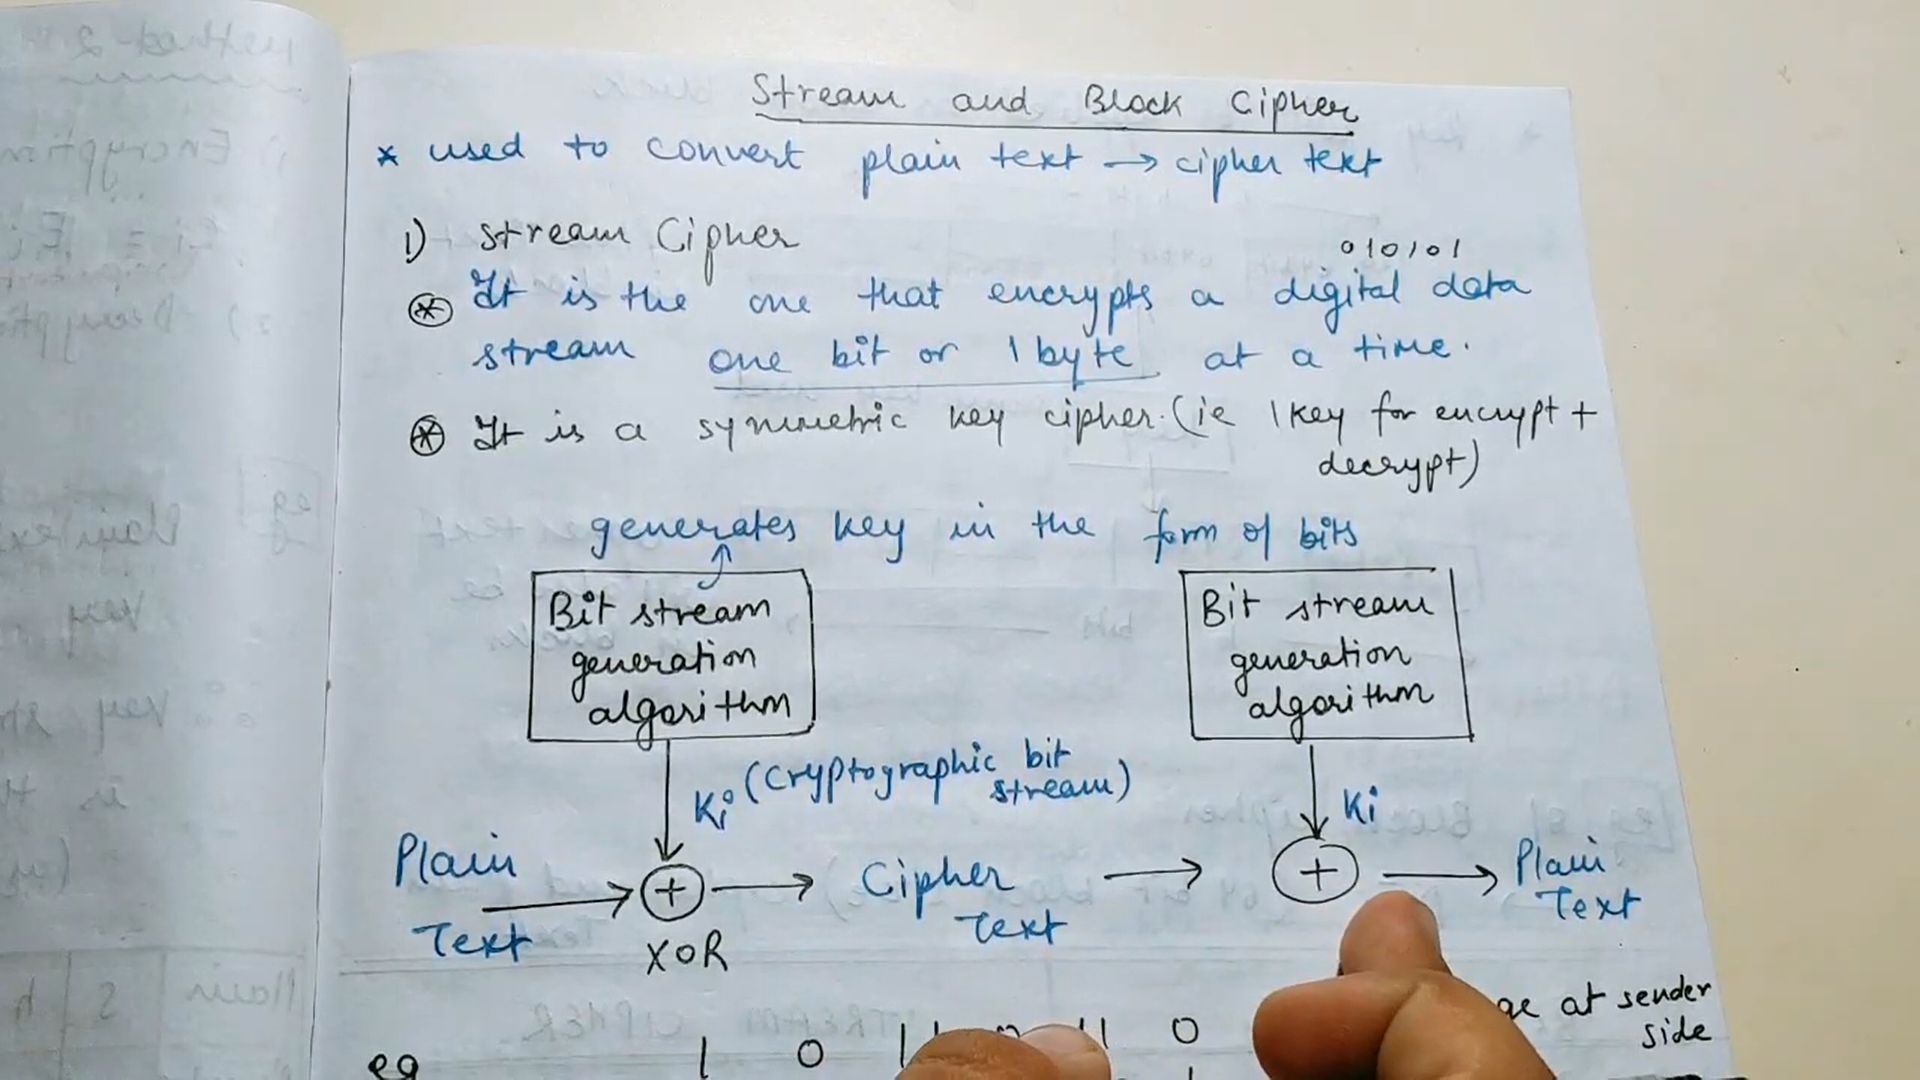 Stream and Block Cipher
* used to convert plain text → cipher text
1) Stream Cipher
010101
* It is the one that encrypts a digital data
stream one bit or 1 byte at a time.
* It is a symmetric key cipher. (ie 1 key for encrypt +
decrypt)
generates key in the form of bits
Bit stream
generation
algorithm
Bit stream
generation
algorithm
Ki (Cryptographic bit
stream)
Ki
Plain
Text
+
XOR
Cipher
Text
+
Plain
Text
at sender
side
eg 1 0 1
0